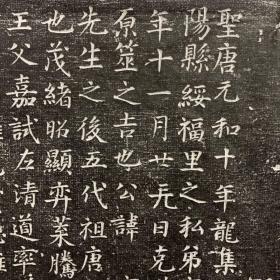 聖唐元和十年龍集
陽縣綏福里之私弟
年十一月廿九日克
原筮之吉也公諱
先生之後五代祖唐
也茂緒昭顯弈葉騰
王父嘉試左清道率